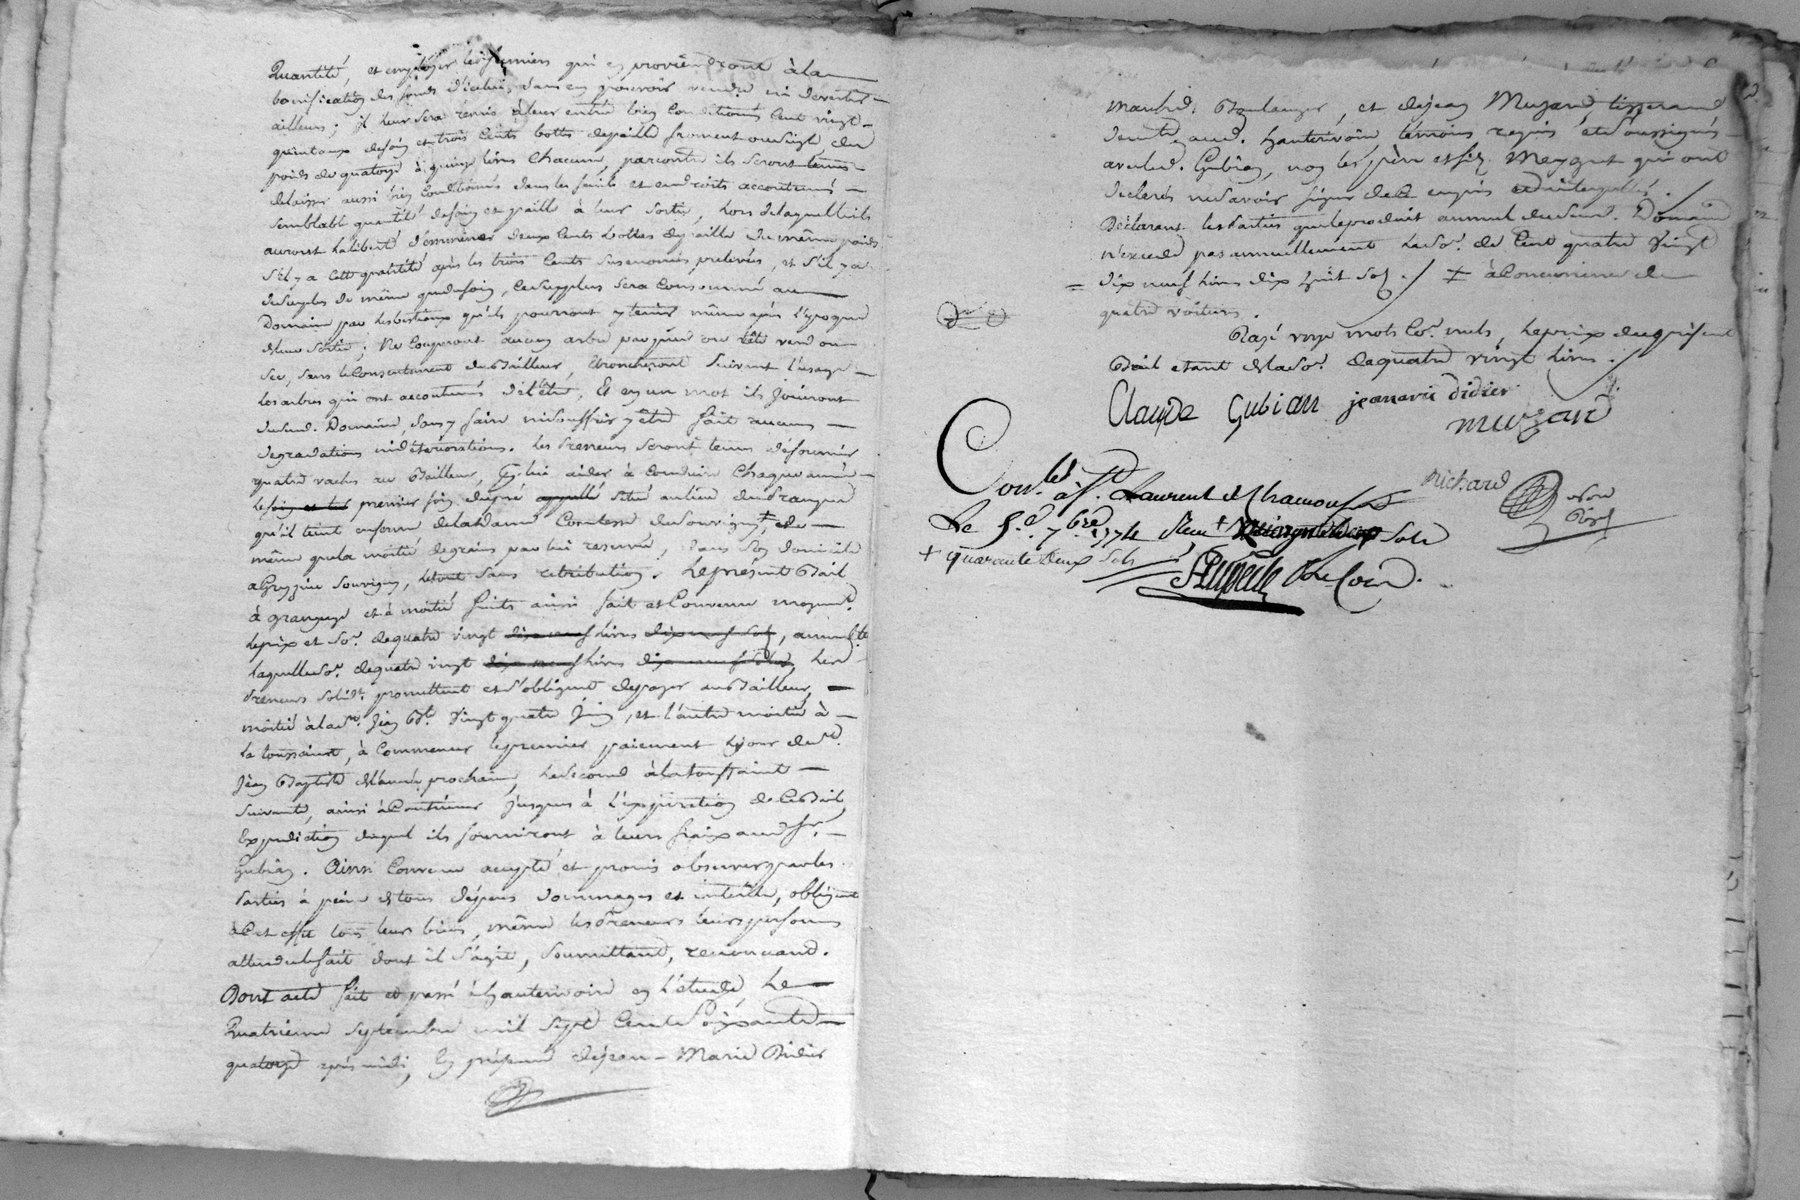 Quantité, et employer les fumiers qui en proviendront à la
bonification des fonds d'icelui, sans en pouvoir vendre ni divertir
ailleurs; il leur sera remis à leur entrée bien conditionnés cent vingt
quintaux de foin et trois cents bottes de paille froment ou seigle du
poids de quatorze à quinze livres chacune, parcontre ils seront tenus
delaisser aussi bien conditionnés dans les fenils et endroits accoutumés
semblable quantité de foin et paille à leur sortie, hors de laquelle ils
auront la liberté d'emmener deux cents bottes de paille du même poids
s'il y a cette quantité après les trois cents susenoncés prelevées, et s'il y a
du surplus de même que du foin, le surplus sera consommé au
Domaine par les bestiaux qu'ils pourront y tenir même après l'epoque
de leur sortie; Ne couperont aucun arbre par pied ou tête verd ou
sec, sans le consentement du Bailleur, ebroncheront suivant l'usage
les arbres qui ont accoutumés d'être, Et en un mot ils jouiront
dud. Domaine, sans y faire ni souffrir y être fait aucunes
degradations ni déteriorations. Les Preneurs seront tenus de fournir
quatre vaches au Bailleur, lui aider à conduire chaque année
le foin et premier foin du pré appellé situé au lieu des Franques
qu'il tient en ferme de la dame Comtesse de Souvigny + et de
même que la moitié des grains par lui reservée, dans son domicile
à Grezzieu Souvigny, le tout sans retribution. Le présent Bail
à grangeage et à moitié fruits ainsi fait et convenu moyen.t
le prix et so.e de quatre vingt dix neuf livres dix neuf sols, annuel.t
laquelle so.e de quatre vingt dix neuf livres dix neuf sols, les
Preneurs solid.t promettent et s'obligent de payer au Bailleur,
moitié à la st. Jean B.te vingt quatre Juin, et l'autre moitié à
la toussaint, à commencer le premier paiement le jour de st.
Jean Baptiste de l'année prochaine, le second à la toussaint
suivante, ainsi à continuer jusques à l'expiration de ce Bail,
Expedition duquel ils fourniront à leurs fraix aud. sr.
Gubian. Ainsi convenu accepté et promis observer par les
Parties à peine de tous dépens dommages et intérêts, obligeant
à cet effet tous leurs biens, même les Preneurs leurs personnes
attendu le fait dont il s'agit, soumettant, renonçant.
Dont acte fait et passé à hauterivoire en l'étude, Le
Quatrieme septembre mil sept cents soixante
quatorze après midi, En présence de Jean-Marie Didier
marchd. Boulanger, et de Jean Muzard tisserand
demt. aud. hauterivoire témoins requis et soussignés
avec led. Gubian, non les père et fils Meygret qui ont
déclarés ne savoir signer de ce enquis et interpellés.
Déclarant les Parties que le produit annuel dud. Domaine
n'excede pas annuellement la so.e de cent quatre vingt
= dix neuf livres dix huit sols. / + à concurrence de
quatre voitures.
Rayé onze mots co.e nuls, le prix du présent
Bail etant de la so.e de quatre vingt livres.
Claude Gubian jeanmarie didier
muzard
Richard
Not.
Roy.l
Con.lé à S.t Laurent de Chamousset
Le 5.e 7.bre 1774 Reçu + sols
+ quarante deux sols